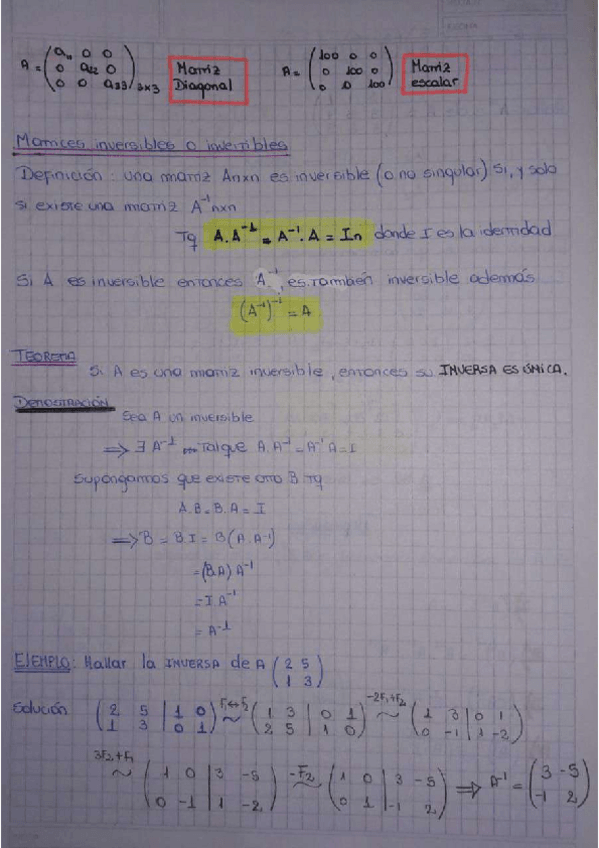 A = (a₁₁ 0 0 / 0 a₂₂ 0 / 0 0 a₃₃)3x3 Matriz Diagonal A = (100 0 0 / 0 100 0 / 0 0 100) Matriz escalar
Matrices inversibles o invertibles
Definición: una matriz Anxn es inversible (o no singular) si, y solo
si existe una matriz A⁻¹nxn
Tq A.A⁻¹ = A⁻¹.A = In donde I es la identidad
Si A es inversible entonces A⁻¹, es también inversible además
(A⁻¹)⁻¹ = A
TEOREMA
Si A es una matriz inversible, entonces su INVERSA ES ÚNICA.
DEMOSTRACIÓN
Sea A un inversible
⟹ ∃ A⁻¹ Tal que A.A⁻¹ = A⁻¹A = I
Supongamos que existe otro B Tq
A.B = B.A = I
⟹ B = B.I = B(A.A⁻¹)
= (B.A) A⁻¹
= I A⁻¹
= A⁻¹
EJEMPLO: Hallar la INVERSA de A (2 5 / 1 3)
Solución (2 5 | 1 0 / 1 3 | 0 1) F₁↔F₂ ~ (1 3 | 0 1 / 2 5 | 1 0) -2F₁+F₂ ~ (1 3 | 0 1 / 0 -1 | 1 -2)
3F₂+F₁ ~ (1 0 | 3 -5 / 0 -1 | 1 -2) -F₂ ~ (1 0 | 3 -5 / 0 1 | -1 2) ⟹ A⁻¹ = (3 -5 / -1 2)